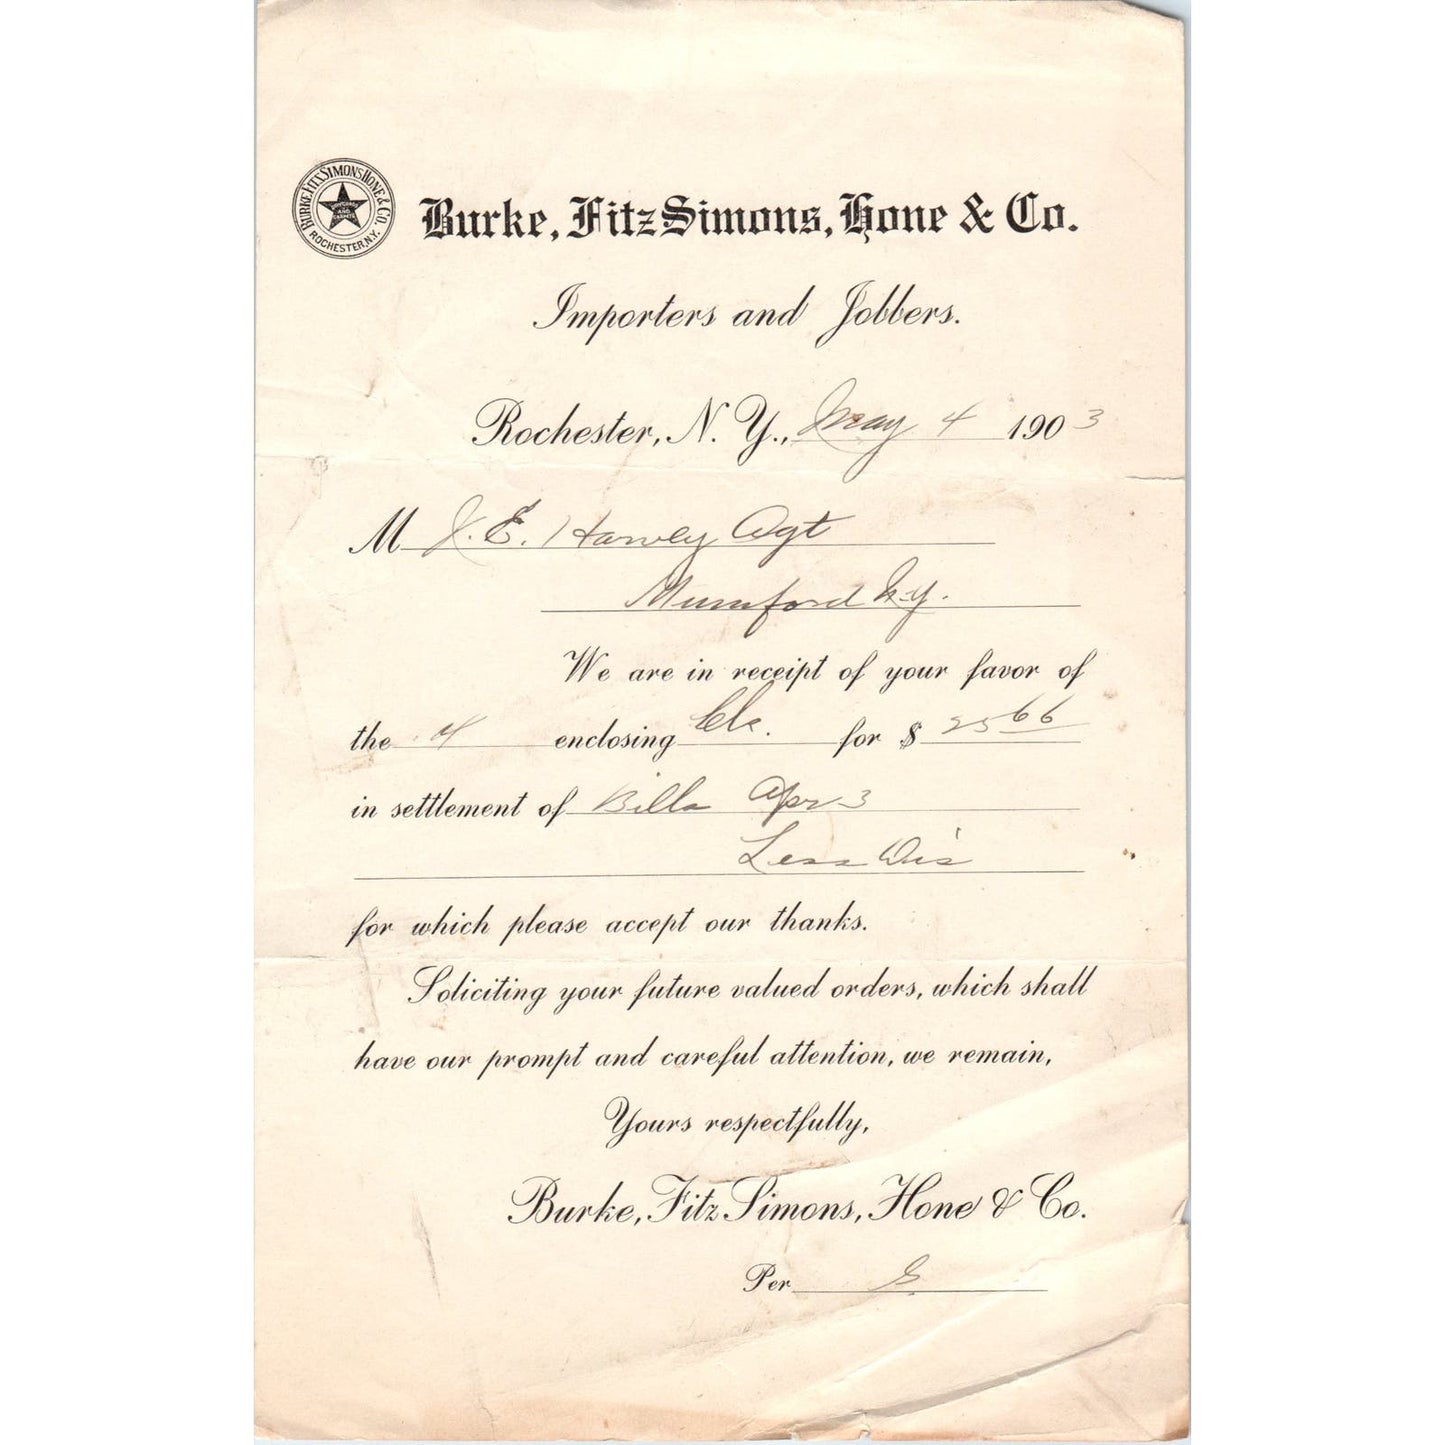 BURKE, FITZSIMONS, HONE & CO.
DRY GOODS
AND
CARPETS
ROCHESTER, N.Y.
Burke, FitzSimons, Hone & Co.
Importers and Jobbers.
Rochester, N. Y., May 4 1903
M J. E. Harvey Agt
Mumford N.Y.
We are in receipt of your favor of
the 4 enclosing Ck. for $ 25 66
in settlement of Bills Apr 3
Less Dis
for which please accept our thanks.
Soliciting your future valued orders, which shall
have our prompt and careful attention, we remain,
Yours respectfully,
Burke, FitzSimons, Hone & Co.
Per G